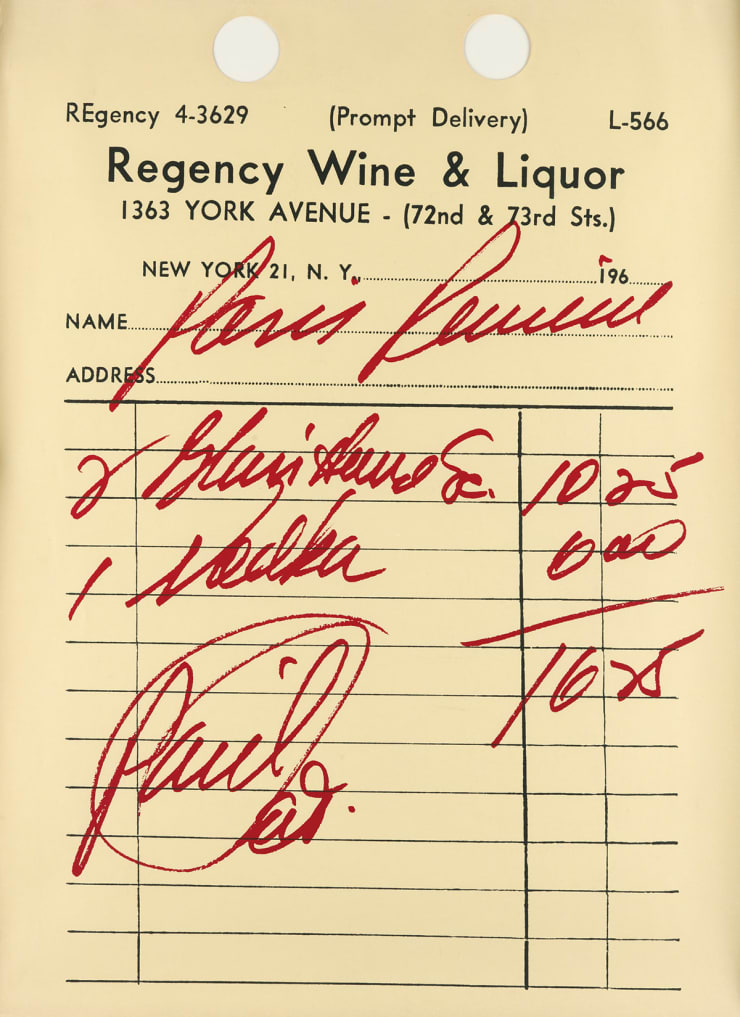 REgency 4-3629 (Prompt Delivery) L-566
Regency Wine & Liquor
1363 YORK AVENUE - (72nd & 73rd Sts.)
NEW YORK 21, N. Y., 196
NAME Paris Review
ADDRESS
2 Sc. 10 25
1 Vodka 6 00
16 25
Paid